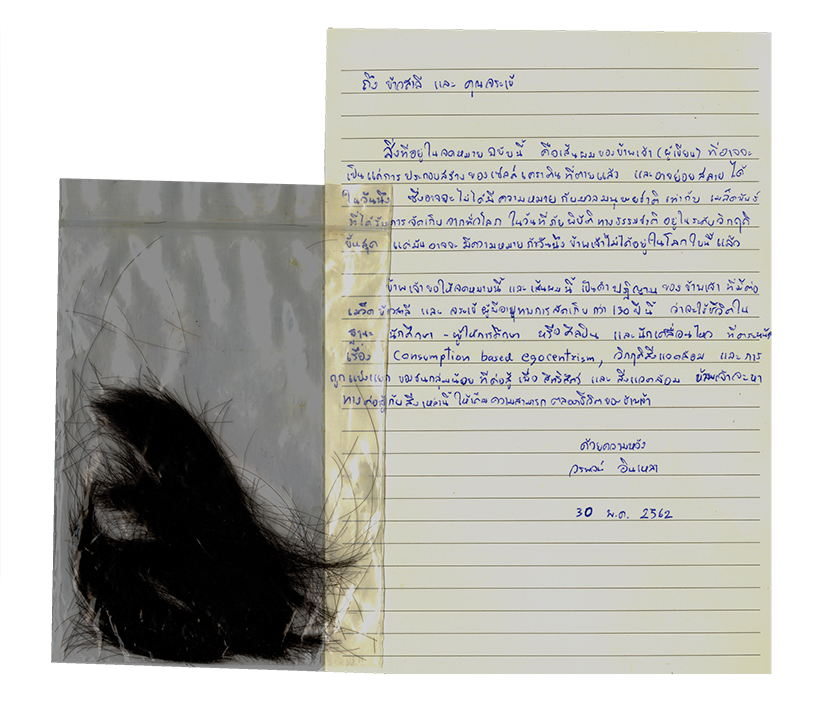 ถึง ข้าวสาลี และ คุณจระเข้
สิ่งที่อยู่ในจดหมาย ฉบับนี้ คือเส้นผมของข้าพเจ้า (ผู้เขียน) ที่อาจจะ
เป็นแค่การ ประกอบสร้าง ของเซลล์ เคราตินที่ตายแล้ว และอาจย่อยสลาย ได้
ในวันนึง ซึ่งอาจจะไม่ได้มีความหมาย กับมวลมนุษยชาติ เท่ากับ เมล็ดพันธ์
ที่ได้รับการจัดเก็บ จากทั่วโลก ในวันที่ภัยพิบัติทางธรรมชาติ อยู่ในระดับวิกฤติ
ขั้นสุด แต่มันอาจจะ มีความหมาย ถ้าวันนึง ข้าพเจ้าไม่ได้อยู่ในโลกใบนี้ แล้ว
ข้าพเจ้าขอให้จดหมายนี้ และเส้นผมนี้ เป็นคำ ปฏิญาณ ของ ข้าพเจ้า ที่มีต่อ
เมล็ดข้าวสาลี และ จระเข้ ผู้มีอายุทางการจัดเก็บกว่า 130 ปีนี้ ว่าจะใช้ชีวิตใน
ฐานะ นักศึกษา - ผู้ให้การศึกษา หรือศิลปิน และนักเคลื่อนไหว ที่ตระหนัก
เรื่อง Consumption based egocentrism, วิกฤติสิ่งแวดล้อม และ การ
ถูกแบ่งแยก ของชนกลุ่มน้อย ที่ต่อสู้ เพื่อ สิทธิสัตว์ และ สิ่งแวดล้อม ข้าพเจ้าจะหา
ทางต่อสู้กับสิ่งเหล่านี้ ให้เต็มความสามารถ ตลอดชีวิตของข้าพเจ้า
ด้วยความหวัง
อินเหลา
30 พ.ค. 2562